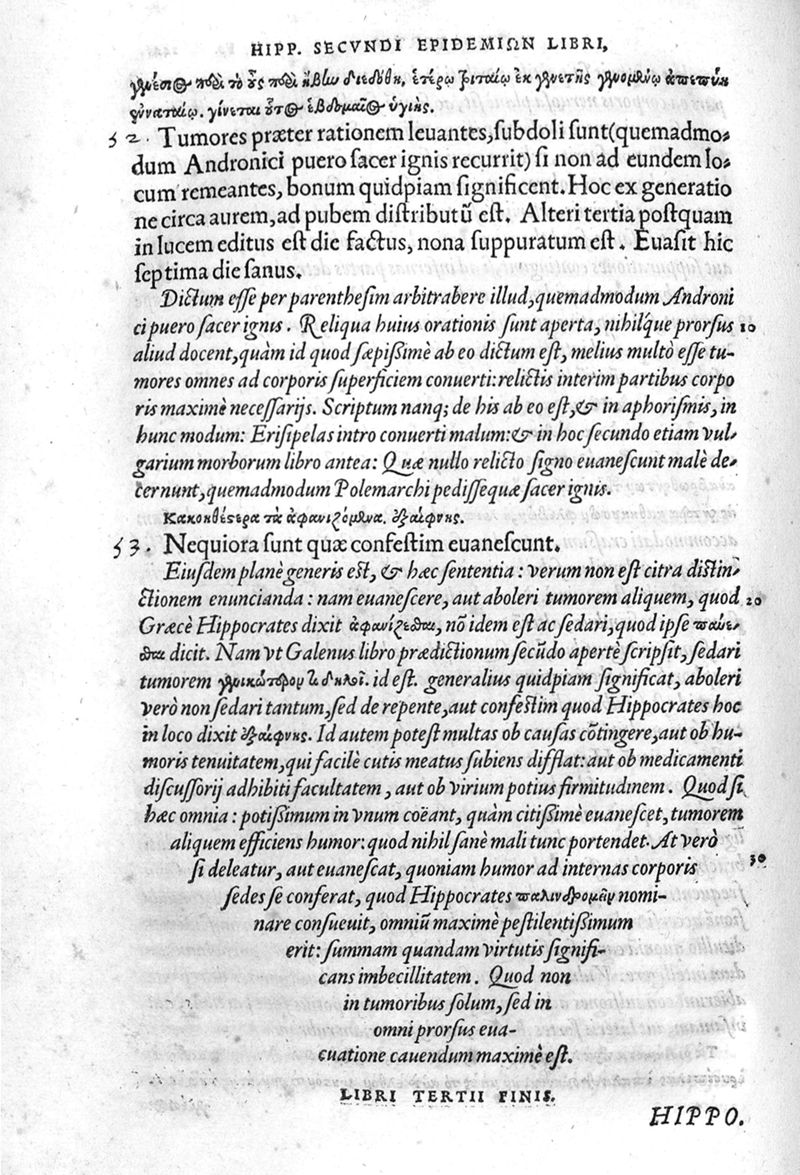 HIPP. SECVNDI EPIDEMIΩN LIBRI,
τὸ οὖς ἥβην διεδόθη, ἑτέρῳ τριταίῳ ἐκ γενετῆς
ἐνναταίῳ. γίνεται οὗτος ἑβδομαῖος ὑγιής.
52. Tumores præter rationem leuantes, subdoli sunt(quemadmo-
dum Andronici puero sacer ignis recurrit) si non ad eundem lo-
cum remeantes, bonum quidpiam significent. Hoc ex generatio
ne circa aurem, ad pubem distributũ est. Alteri tertia postquam
in lucem editus est die factus, nona suppuratum est. Euasit hic
septima die sanus.
Dictum esse per parenthesim arbitrabere illud, quemadmodum Androni
ci puero sacer ignis. Reliqua huius orationis sunt aperta, nihilq́ue prorsus 10
aliud docent, quàm id quod sæpißimè ab eo dictum est, melius multò esse tu-
mores omnes ad corporis superficiem conuerti: relictis interim partibus corpo
ris maximè necessarijs. Scriptum nanq; de his ab eo est, & in aphorismis, in
hunc modum: Erisipelas intro conuerti malum: & in hoc secundo etiam vul-
garium morborum libro antea: Quæ nullo relicto signo euanescunt malè de-
ternunt, quemadmodum Polemarchi pedissequæ sacer ignis.
Κακοηθέστερα τὰ ἀφανιζόμενα. ἐξαίφνης.
53. Nequiora sunt quæ confestim euanescunt.
Eiusdem planè generis est, & hæc sententia: verum non est citra distin-
ctionem enuncianda: nam euanescere, aut aboleri tumorem aliquem, quod 20
Græcè Hippocrates dixit ἀφανίζεσθαι, nõ idem est ac sedari, quod ipse παύε-
σθαι dicit. Nam vt Galenus libro prædictionum secũdo apertè scripsit, sedari
tumorem γενικώτερόν τι δηλοῖ. id est. generalius quidpiam significat, aboleri
verò non sedari tantum, sed de repente, aut confestim quod Hippocrates hoc
in loco dixit ἐξαίφνης. Id autem potest multas ob causas cõtingere, aut ob hu-
moris tenuitatem, qui facilè cutis meatus subiens difflat: aut ob medicamenti
discussorij adhibiti facultatem, aut ob virium potius firmitudinem. Quod si
hæc omnia: potißimum in vnum coëant, quàm citißimè euanescet, tumorem
aliquem efficiens humor: quod nihil sanè mali tunc portendet. At verò
si deleatur, aut euanescat, quoniam humor ad internas corporis 30
sedes se conferat, quod Hippocrates παλινδρομεῖν nomi-
nare consueuit, omniũ maximè pestilentißimum
erit: summam quandam virtutis signifi-
cans imbecillitatem. Quod non
in tumoribus solum, sed in
omni prorsus eua-
cuatione cauendum maximè est.
LIBRI TERTII FINIS.
HIPPO.